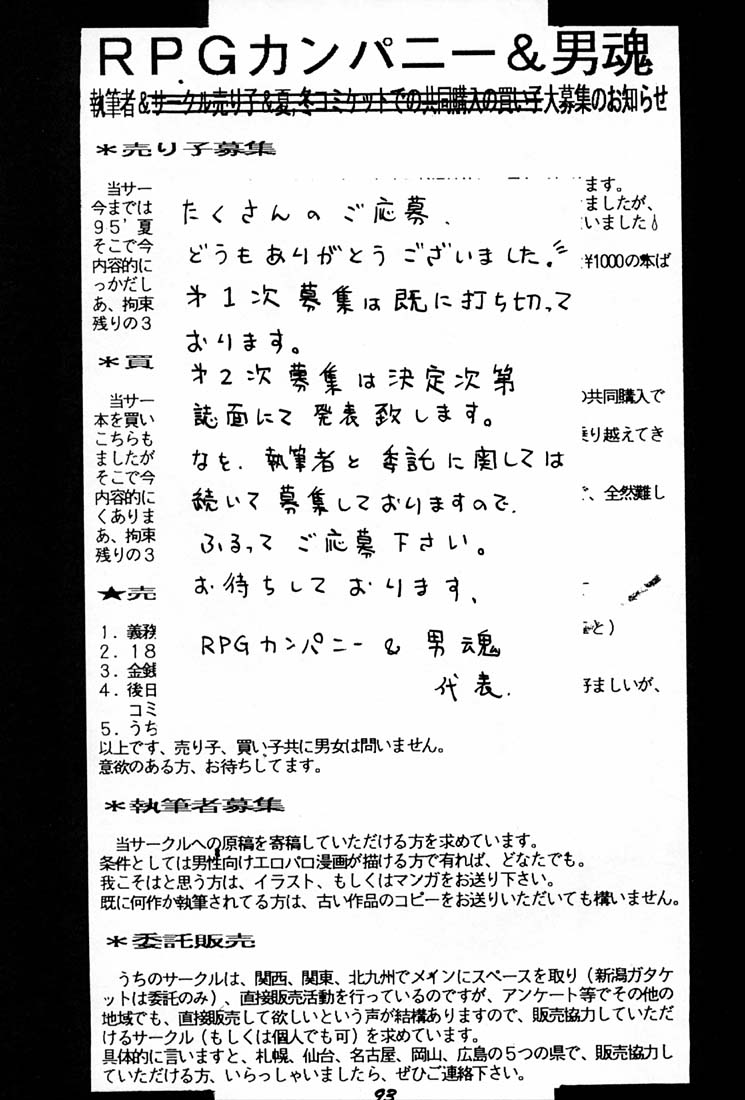 RPGカンパニー&男魂
執筆者&サークル売り子&夏、冬コミケットでの共同購入の買い子大募集のお知らせ
＊売り子募集
当サー
今までは
95'夏
そこで今
内容的に
っかだし
あ、拘束
残りの3
ます。
ましたが、
いました
¥1000の本ば
＊買
当サー
本を買い
こちらも
ましたが
そこで今
内容的に
くありま
あ、拘束
残りの3
の共同購入で
乗り越えてき
、全然難し
★売
1．義務
2．18
3．金銭
4．後日
コミ
5．うち
と）
好ましいが、
たくさんのご応募、
どうもありがとうございました!
オ1次募集は既に打ち切って
おります。
オ2次募集は決定次第
誌面にて発表致します。
なを、執筆者と委託に関しては
続いて募集しておりますので、
ふるってご応募下さい。
お待ちしております、
RPGカンパニー & 男魂
代表.
以上です、売り子、買い子共に男女は問いません。
意欲のある方、お待ちしてます。
＊執筆者募集
当サークルへの原稿を寄稿していただける方を求めています。
条件としては男性向けエロパロ漫画が描ける方で有れば、どなたでも。
我こそはと思う方は、イラスト、もしくはマンガをお送り下さい。
既に何作か執筆されてる方は、古い作品のコピーをお送りいただいても構いません。
＊委託販売
うちのサークルは、関西、関東、北九州でメインにスペースを取り（新潟ガタケ
ットは委託のみ）、直接販売活動を行っているのですが、アンケート等でその他の
地域でも、直接販売して欲しいという声が結構ありますので、販売協力していただ
けるサークル（もしくは個人でも可）を求めています。
具体的に言いますと、札幌、仙台、名古屋、岡山、広島の5つの県で、販売協力し
ていただける方、いらっしゃいましたら、ぜひご連絡下さい。
93